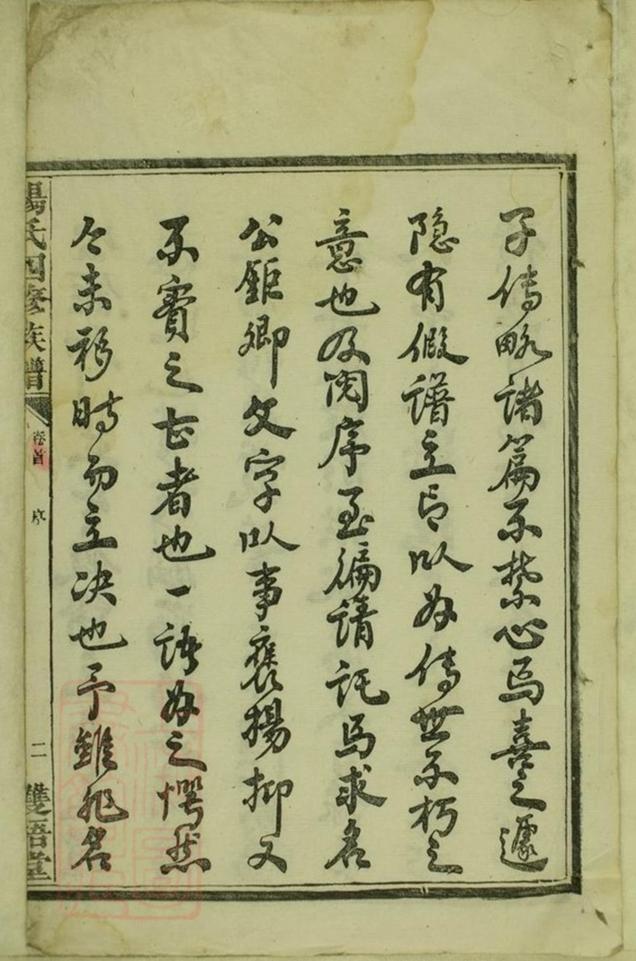 子傳略諸篇不禁心焉喜之遽
隐有假譜立言以為傳世不朽之
意也及阅序至徧請託焉求名
公鉅卿文字以事褒揚抑又
不實之甚者也一語為之愕然
今未移時而立决也予雖非名
楊氏四修族譜
卷首
序
二
雙語堂